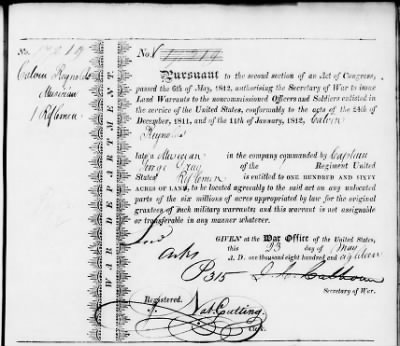 No. 17219
Calvin Reynolds
Musician
1 Riflemen
WAR DEPARTMENT.
No. 17219
Pursuant to the second section of an Act of Congress,
passed the 6th of May, 1812, authorising the Secretary of War to issue
Land Warrants to the noncommissioned Officers and Soldiers enlisted in
the service of the United States, conformably to the acts of the 24th of
December, 1811, and of the 11th of January, 1812, Calvin
Reynolds
late a Musician in the company commanded by Captain
Gray of the Regiment United
States Riflemen is entitled to ONE HUNDRED AND SIXTY
ACRES OF LAND, to be located agreeably to the said act on any unlocated
parts of the six millions of acres appropriated by law for the original
grantees of such military warrants; and this warrant is not assignable
or transferable in any manner whatever.
GIVEN at the War Office of the United States,
this 23 day of May
A. D. one thousand eight hundred and
Arks
P315 J. C. Calhoun
Secretary of War.
Registered.
Nat. Cutting
Clk.